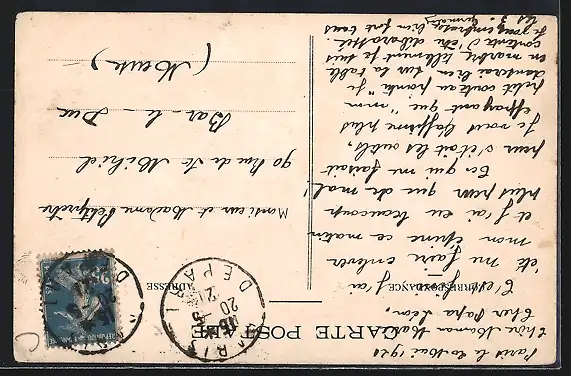 CARTE POSTALE
CORRESPONDANCE
ADRESSE
Paris le 20 Mai 1921
Chère Maman Marie
Cher Papa Léon,
C'est fini j'ai
été me faire enlever
mon épine ce matin
et j'ai eu beaucoup
plus peur que de mal!
Ce qui me faisait
peur s'était les outils,
je vous l'affirme plus
effrayant que "mon
petit couteau pointu" je
danserai bien sur la table
en marbre tellement je suis
contente d'être débarassée.
Je vous embrasse bien fort tous
les 3.
Monsieur et Madame Petitprêtre
90 Rue de St Mihiel
Bar-le-Duc
(Meuse)
DEPART
20
5
21